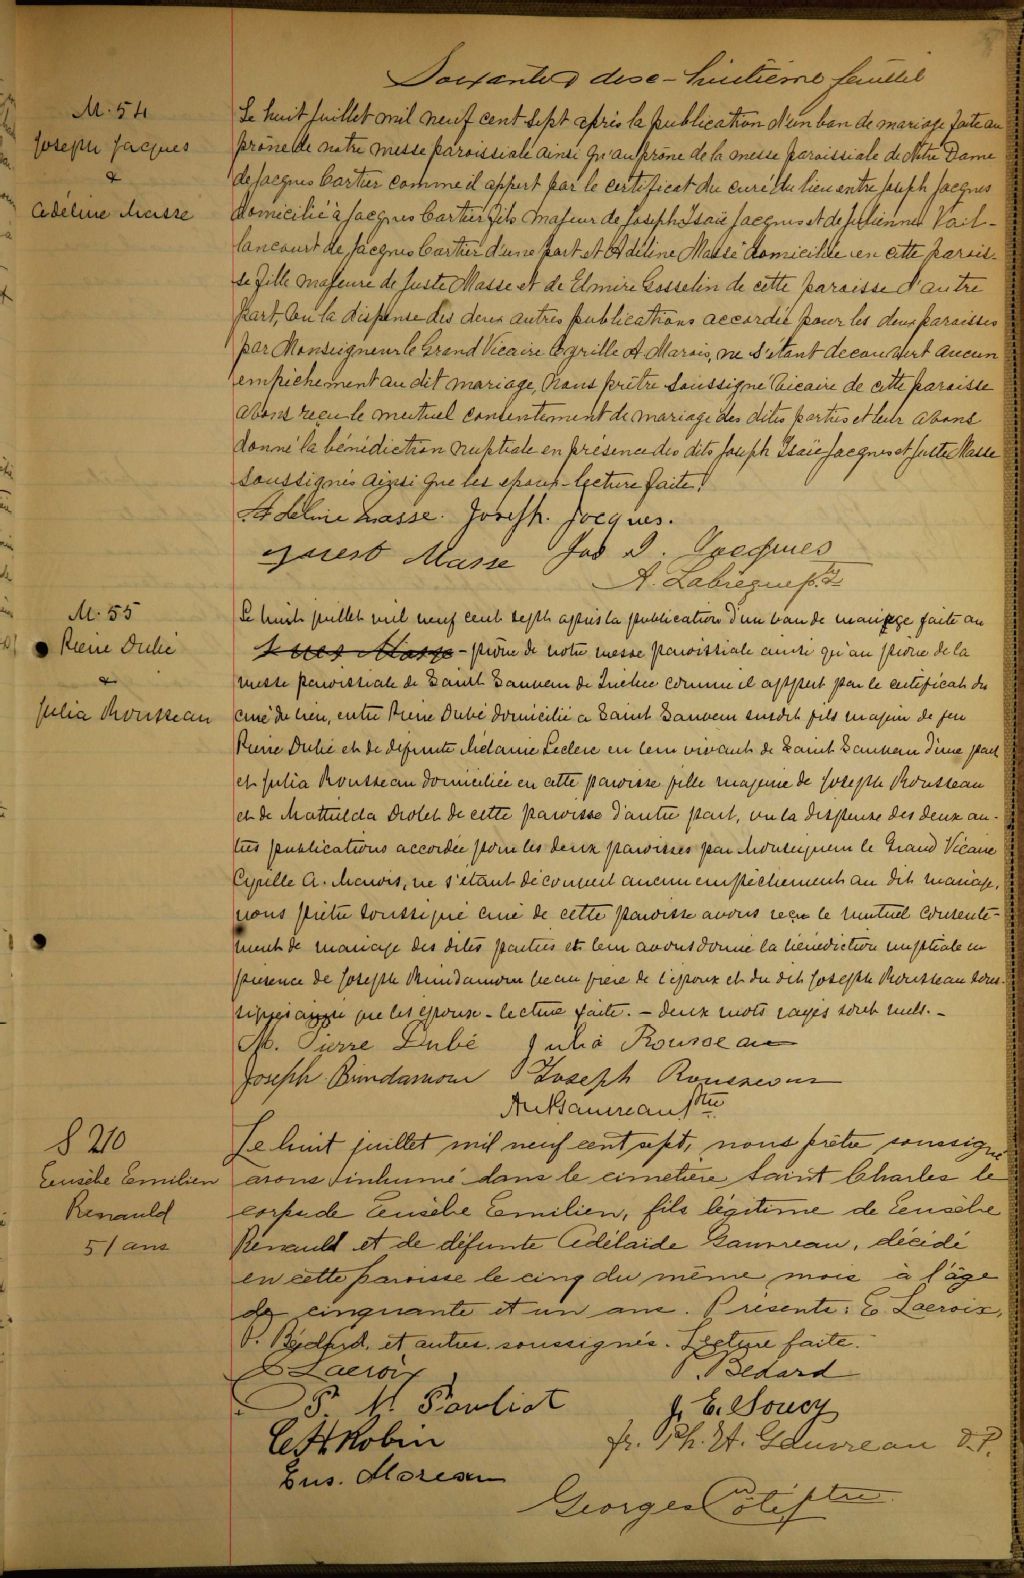 Soixante & dix-huitième feuillet
M. 54
Joseph Jacques
&
Adéline Masse
Le huit Juillet mil neuf cent sept après la publication d'un ban de mariage faite au
prône de notre messe paroissiale ainsi qu'au prône de la messe paroissiale de Notre Dame
de Jacques Cartier comme il appert par le certificat du curé du lieu entre Joseph Jacques
domicilié à Jacques Cartier fils majeur de Joseph Isaïe Jacques et de Julienne Vail-
lancourt de Jacques Cartier d'une part et Adéline Masse domiciliée en cette parois-
se fille majeure de Juste Masse et de Elmire Gosselin de cette paroisse d'autre
part, Vu la dispense des deux autres publications accordée pour les deux paroisses
par Monseigneur le Grand Vicaire Cyrille A. Marois, ne s'étant decouvert aucun
empêchement au dit mariage, Nous prêtre soussigné Vicaire de cette paroisse
avons reçu le mutuel consentement de mariage des dites parties et leur avons
donné la bénédiction nuptiale en présence des dits Joseph Isaïe Jacques et Juste Masse
soussignés ainsi que les epoux - lecture faite.
Adeline Masse. Joseph. Jacques.
Juest Masse Jos I. Jacques
A. Labrèque ptr
M. 55
Pierre Dubé
&
Julia Rousseau
Le huit juillet mil neuf cent sept après la publication d'un ban de mariage faite au
- prône de notre messe paroissiale ainsi qu'au prône de la
messe paroissiale de Saint Sauveur de Québec comme il appert par le certificat du
curé du lieu, entre Pierre Dubé domicilié à Saint Sauveur susdit fils majeur de feu
Pierre Dubé et de défunte Mélanie Leclerc en leur vivant de Saint Sauveur d'une part
et Julia Rousseau domiciliée en cette paroisse fille majeure de Joseph Rousseau
et de Mathilda Drolet de cette paroisse d'autre part, vu la dispense des deux au-
tres publications accordée pour les deux paroisses par Monseigneur le Grand Vicaire
Cyrille A. Marois, ne s'étant découvert aucun empêchement au dit mariage,
nous prêtre soussigné curé de cette paroisse avons reçu le mutuel consente-
ment de mariage des dites parties et leur avons donné la bénédiction nuptiale en
présence de Joseph Brindamour beau frère de l'époux et du dit Joseph Rousseau sous-
signés ainsi que les époux - lecture faite. - deux mots rayés sont nuls. -
M. Pierre Dubé Julia Rousseau
Joseph Brindamour Joseph Rousseau
Ant Gauvreau Ptre
S 210
Eusèbe Emilien
Renauld
51 ans
Le huit juillet mil neuf cent sept, nous prêtre soussigné
avons inhumé dans le cimetière Saint Charles le
corps de Eusèbe Emilien, fils légitime de Eusèbe
Renauld et de défunte Adélaïde Gauvreau, décédé
en cette paroisse le cinq du même mois à l'âge
de cinquante et un ans. Présents: E. Lacroix,
P. Bédard, et autres soussignés. Lecture faite.
E Lacroix P. Bedard
P. N. Pouliot J. E. Soucy
C. H. Robin fr. Ph. H. Gauvreau O.P.
Eus. Moreau
Georges Côté ptre